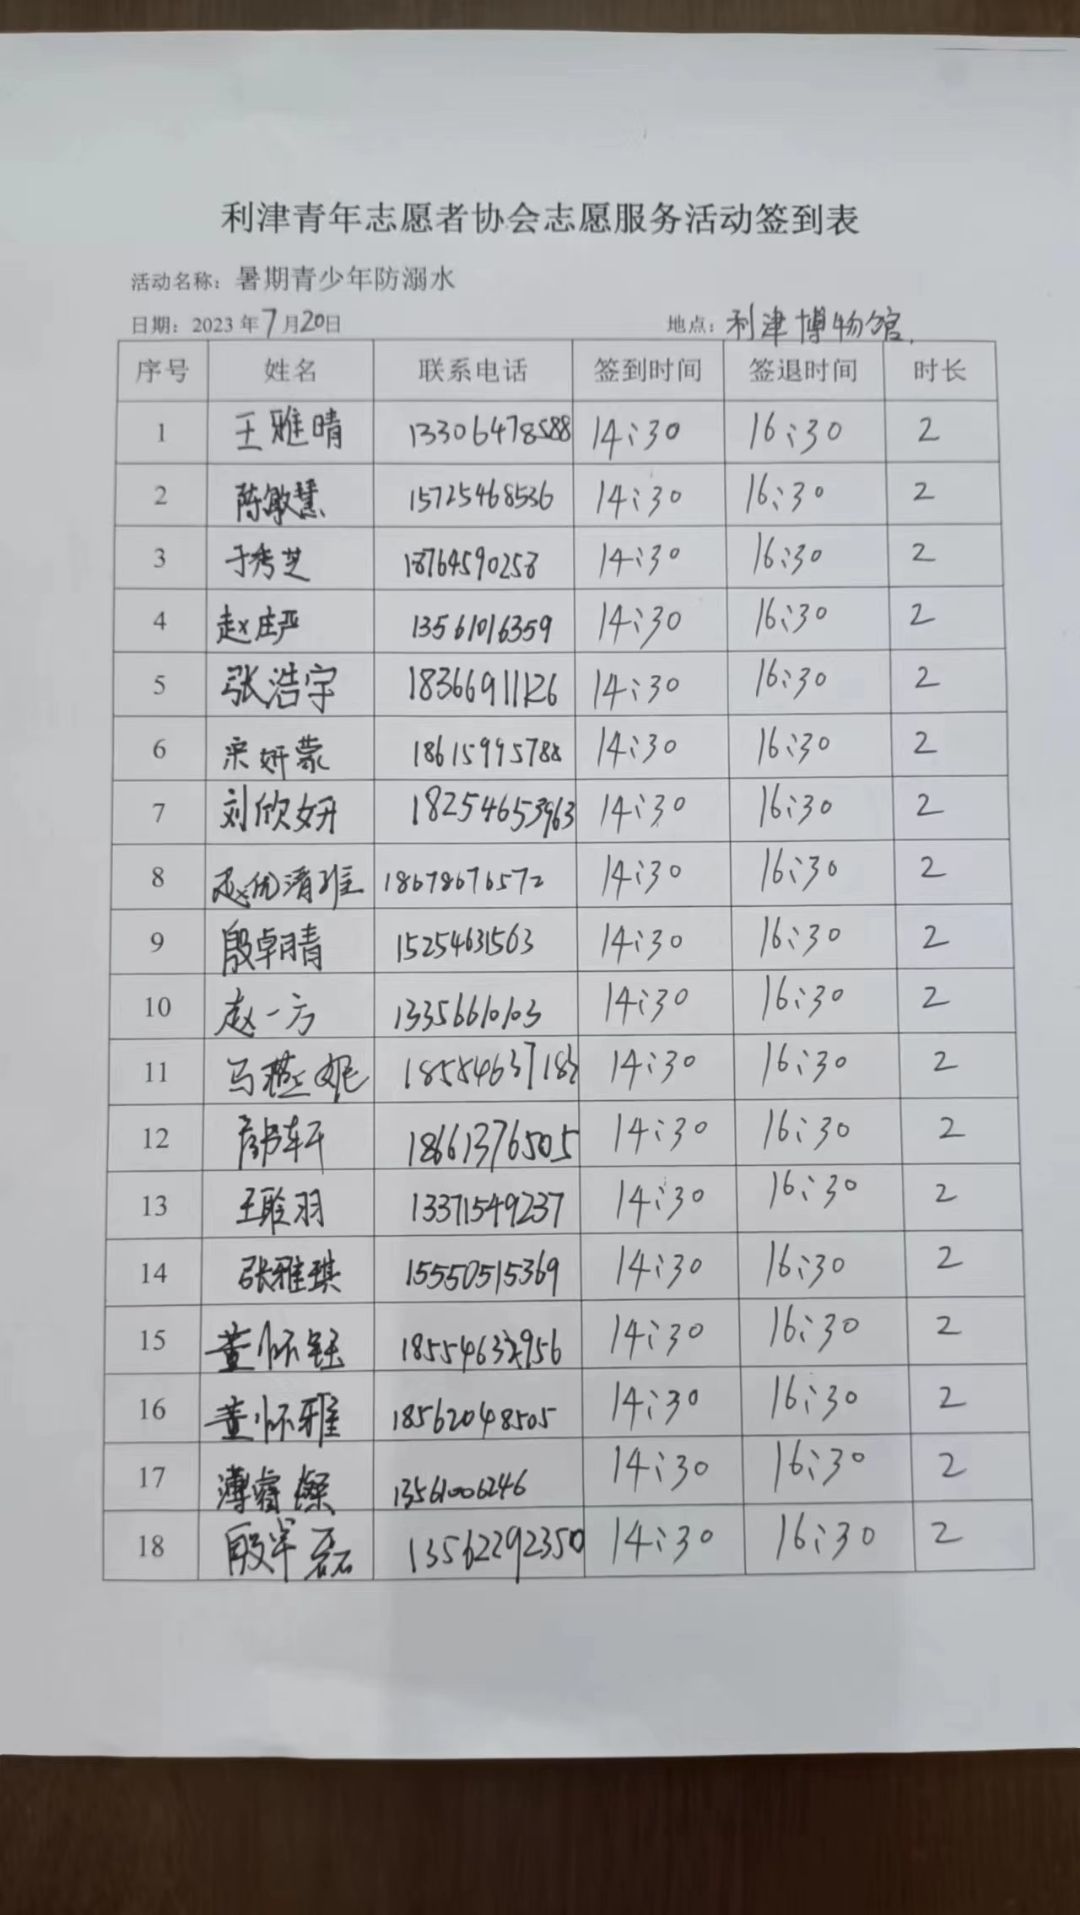 利津青年志愿者协会志愿服务活动签到表
活动名称：暑期青少年防溺水
日期：2023年7月20日 地点：利津博物馆.
序号 姓名 联系电话 签到时间 签退时间 时长
1 王雅晴 13306478588 14:30 16:30 2
2 陈敏慧 15725468536 14:30 16:30 2
3 于秀芝 18764590258 14:30 16:30 2
4 赵庄严 13561016359 14:30 16:30 2
5 张浩宇 18366911126 14:30 16:30 2
6 宋妍蒙 18615995788 14:30 16:30 2
7 刘欣妍 18254653963 14:30 16:30 2
8 18678676572 14:30 16:30 2
9 殷朝晴 15254631563 14:30 16:30 2
10 赵一方 13356610103 14:30 16:30 2
11 马燕妮 18554637183 14:30 16:30 2
12 18661376505 14:30 16:30 2
13 王聆羽 13371549237 14:30 16:30 2
14 张雅琪 15550515369 14:30 16:30 2
15 董怀钰 14:30 16:30 2
16 董怀雅 18562048505 14:30 16:30 2
17 薄睿燦 13561006246 14:30 16:30 2
18 殷军磊 13562292350 14:30 16:30 2